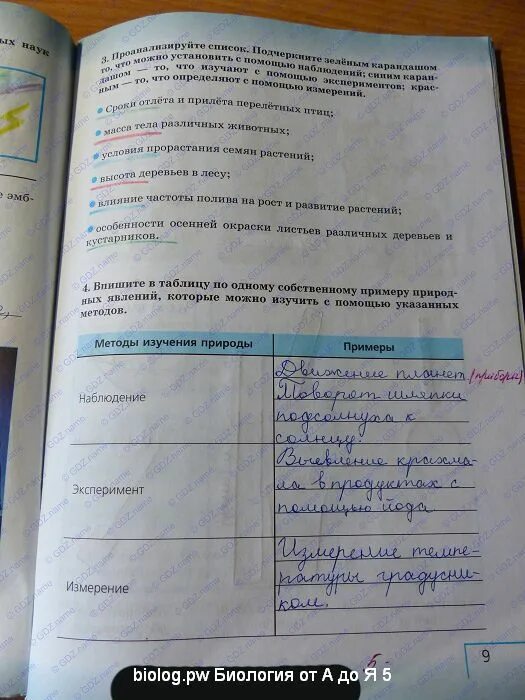 ых наук
3. Проанализируйте список. Подчеркните зелёным карандашом
то, что можно установить с помощью наблюдений; синим каран-
дашом — то, что изучают с помощью экспериментов; крас-
ным — то, что определяют с помощью измерений.
Сроки отлёта и прилёта перелётных птиц;
масса тела различных животных;
условия прорастания семян растений;
высота деревьев в лесу;
влияние частоты полива на рост и развитие растений;
особенности осенней окраски листьев различных деревьев и
кустарников.
е эмб-
4. Впишите в таблицу по одному собственному примеру природ-
ных явлений, которые можно изучить с помощью указанных
методов.
Методы изучения природы Примеры
Наблюдение
Движение планет (приборы)
Поворот шляпки
подсолнуха к
солнцу.
Эксперимент
Выевление крахма-
ла в продуктах с
помощью йода
Измерение
Измерение темпе-
ратуры градусни-
ком.
5-
9
© GDZ.name
biolog.pw Биология от А до Я 5